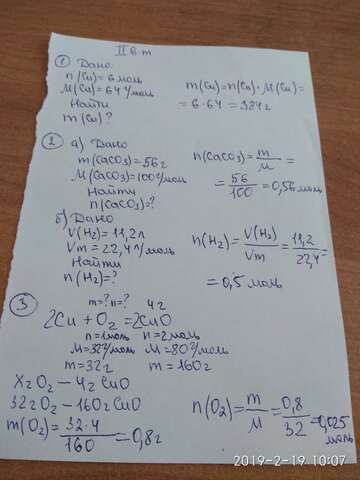 II в т
① Дано
n(Cu)=6 моль
M(Cu)=64 г/моль
Найти
m(Cu)?
m(Cu)=n(Cu)·M(Cu)=
=6·64=384г
② а) Дано
m(CaCO3)=56г
M(CaCO3)=100г/моль
Найти
n(CaCO3)=?
n(CaCO3)=m/M=
=56/100=0,56 моль
б) Дано
V(H2)=11,2л
Vm=22,4 л/моль
Найти
n(H2)=?
n(H2)=V(H2)/Vm=11,2/22,4=
=0,5 моль
③ m=? n=? 4г
2Cu+O2=2CuO
n=1моль n=2моль
M=32г/моль M=80г/моль
m=32г m=160г
Xг O2—4г CuO
32г O2—160г CuO
m(O2)=32·4/160=0,8г
n(O2)=m/M=0,8/32=0,025
моль
2019-2-19 10:07